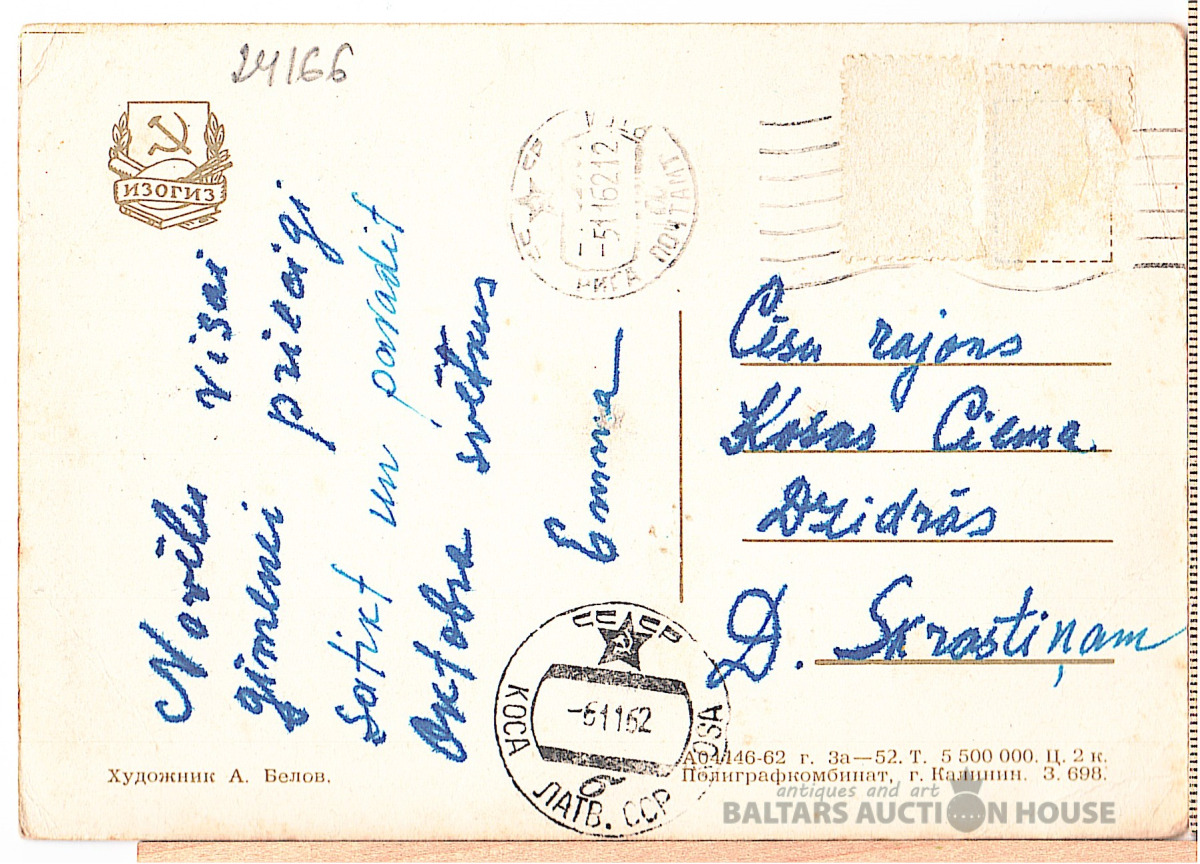 24166
ИЗОГИЗ
Novēlu visai
ģimenei priecīgi
satikt un pavadīt
Oktobra svētkus
Emma
СССР
-51162 12
РИГА ПОЧТАМТ
Cēsu rajons
Kosas Ciema
Dzidrās
D. Skrastiņam
СССР
КОСА
-61162
б
ЛАТВ. ССР
Художник А. Белов.
А04446-62 г. За—52. Т. 5 500 000. Ц. 2 к.
Полиграфкомбинат, г. Калинин. З. 698.
antiques and art
BALTARS AUCTION HOUSE